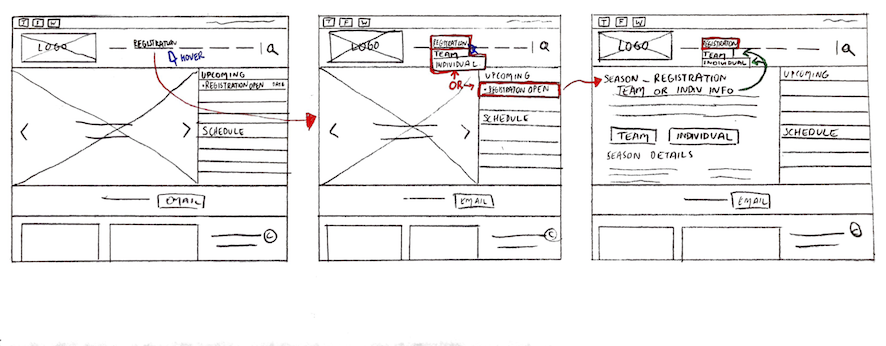 T F W
LOGO
REGISTRATION
HOVER
UPCOMING
• REGISTRATION OPEN
SCHEDULE
EMAIL
C
T F W
LOGO
REGISTRATION
TEAM
INDIVIDUAL
OR
UPCOMING
• REGISTRATION OPEN
SCHEDULE
EMAIL
C
T F W
LOGO
REGISTRATION
TEAM
INDIVIDUAL
SEASON - REGISTRATION
TEAM OR INDIV INFO
TEAM INDIVIDUAL
SEASON DETAILS
UPCOMING
SCHEDULE
EMAIL